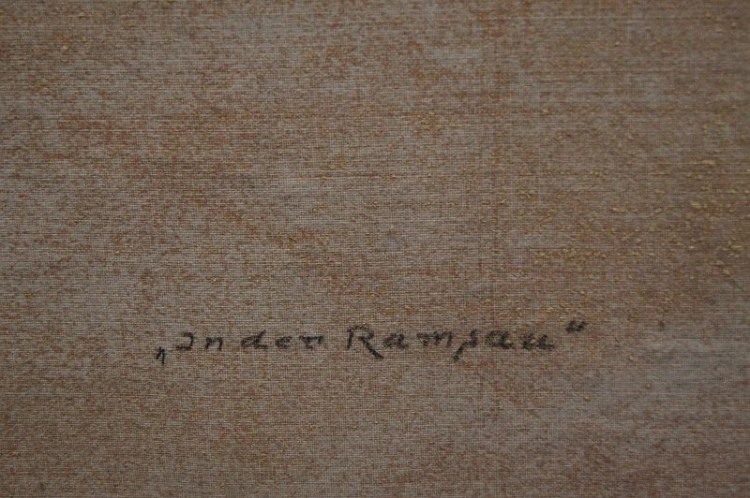 „In der Ramsau“